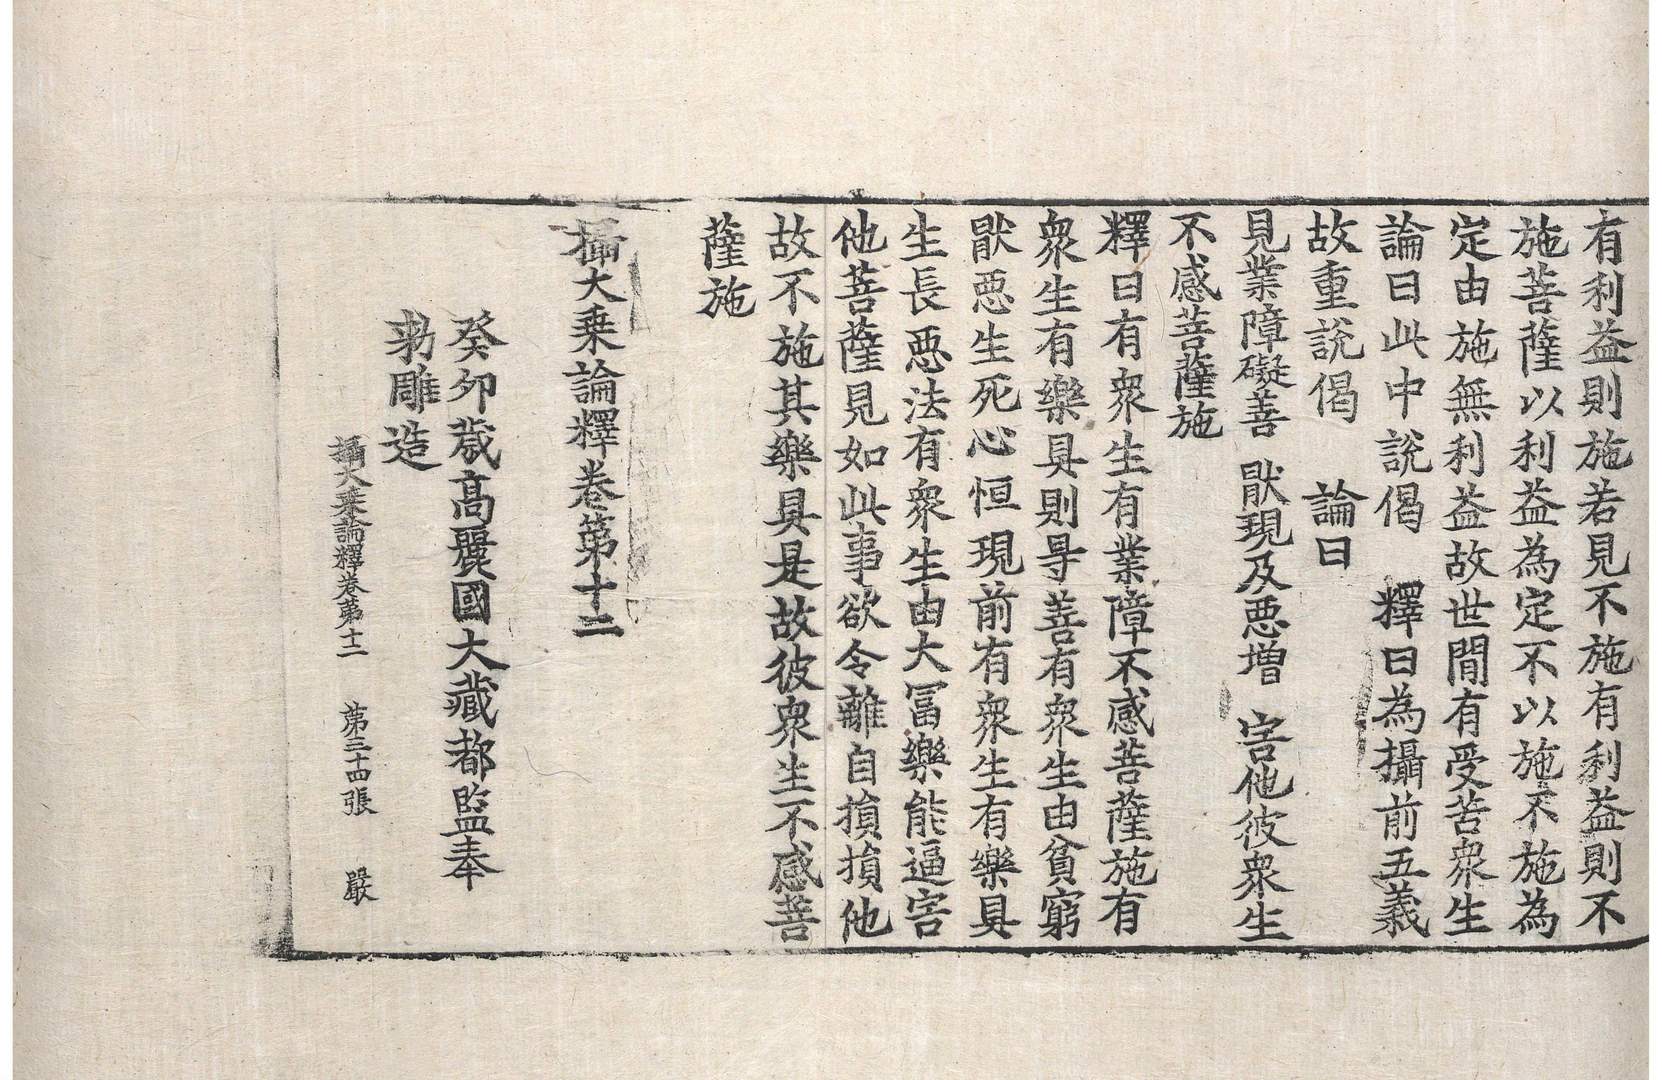 有利益則施若見不施有利益則不
施菩薩以利益為定不以施不施為
定由施無利益故世間有受苦衆生
論曰此中說偈　釋曰為攝前五義
故重說偈　論曰
見業障礙善　厭現及惡增　害他彼衆生
不感菩薩施
釋曰有衆生有業障不感菩薩施有
衆生有樂具則㝵善有衆生由貧窮
厭惡生死心恒現前有衆生有樂具
生長惡法有衆生由大冨樂能逼害
他菩薩見如此事欲令離自損損他
故不施其樂具是故彼衆生不感菩
薩施
攝大乗論釋卷第十二
癸卯歲高麗國大藏都監奉
勑雕造
攝大乗論釋卷第十二　第三十四張　嚴